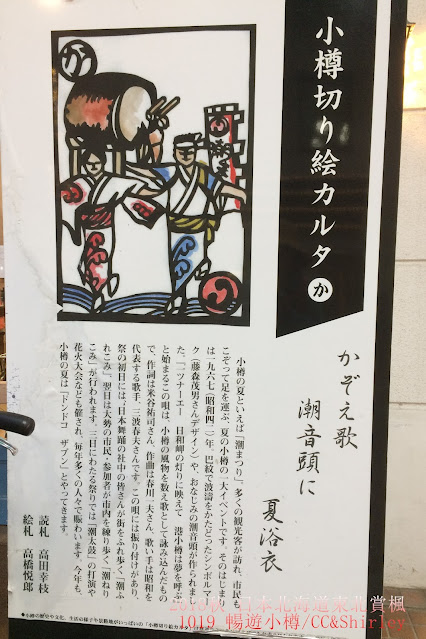 小樽切り絵カルタ か
か
かぞえ歌
潮音頭に
夏浴衣
小樽の夏といえば「潮まつり」。多くの観光客が訪れ、市民も
こぞって足を運ぶ、夏の小樽の一大イベントです。そのはじまり
は一九六七(昭和四二)年。巴紋で波濤をかたどったシンボルマー
ク(藤森茂男さんデザイン)や、おなじみの潮音頭が作られまし
た。「一ツナーエー 日和岬の灯りに映えて 港小樽は夢を呼ぶ」
と始まるこの唄は、小樽の風物を数え歌として詠み込んだもの
で、作詞は米谷祐司さん、作曲は春川一夫さん、歌い手は昭和を
代表する歌手、三波春夫さんです。この唄には振り付けがあり、
祭の初日には、日本舞踊の社中の皆さんが街をふれ歩く「潮ふ
れこみ」、翌日は大勢の市民・参加者が市内を練り歩く「潮ねり
こみ」が行われます。三日にわたる祭りでは「潮太鼓」の打演や
花火大会なども催され、毎年多くの人々で賑わいます。今年も、
小樽の夏は「ドンドコ ザブン」とやってきます。
読札 高田幸枝
絵札 高橋悦郎
●小樽の歴史や文化、生活の様子や景勝地がいっぱいの「小樽切り絵カルタ
2018秋 日本北海道東北賞楓
1019 暢遊小樽/CC&Shirley